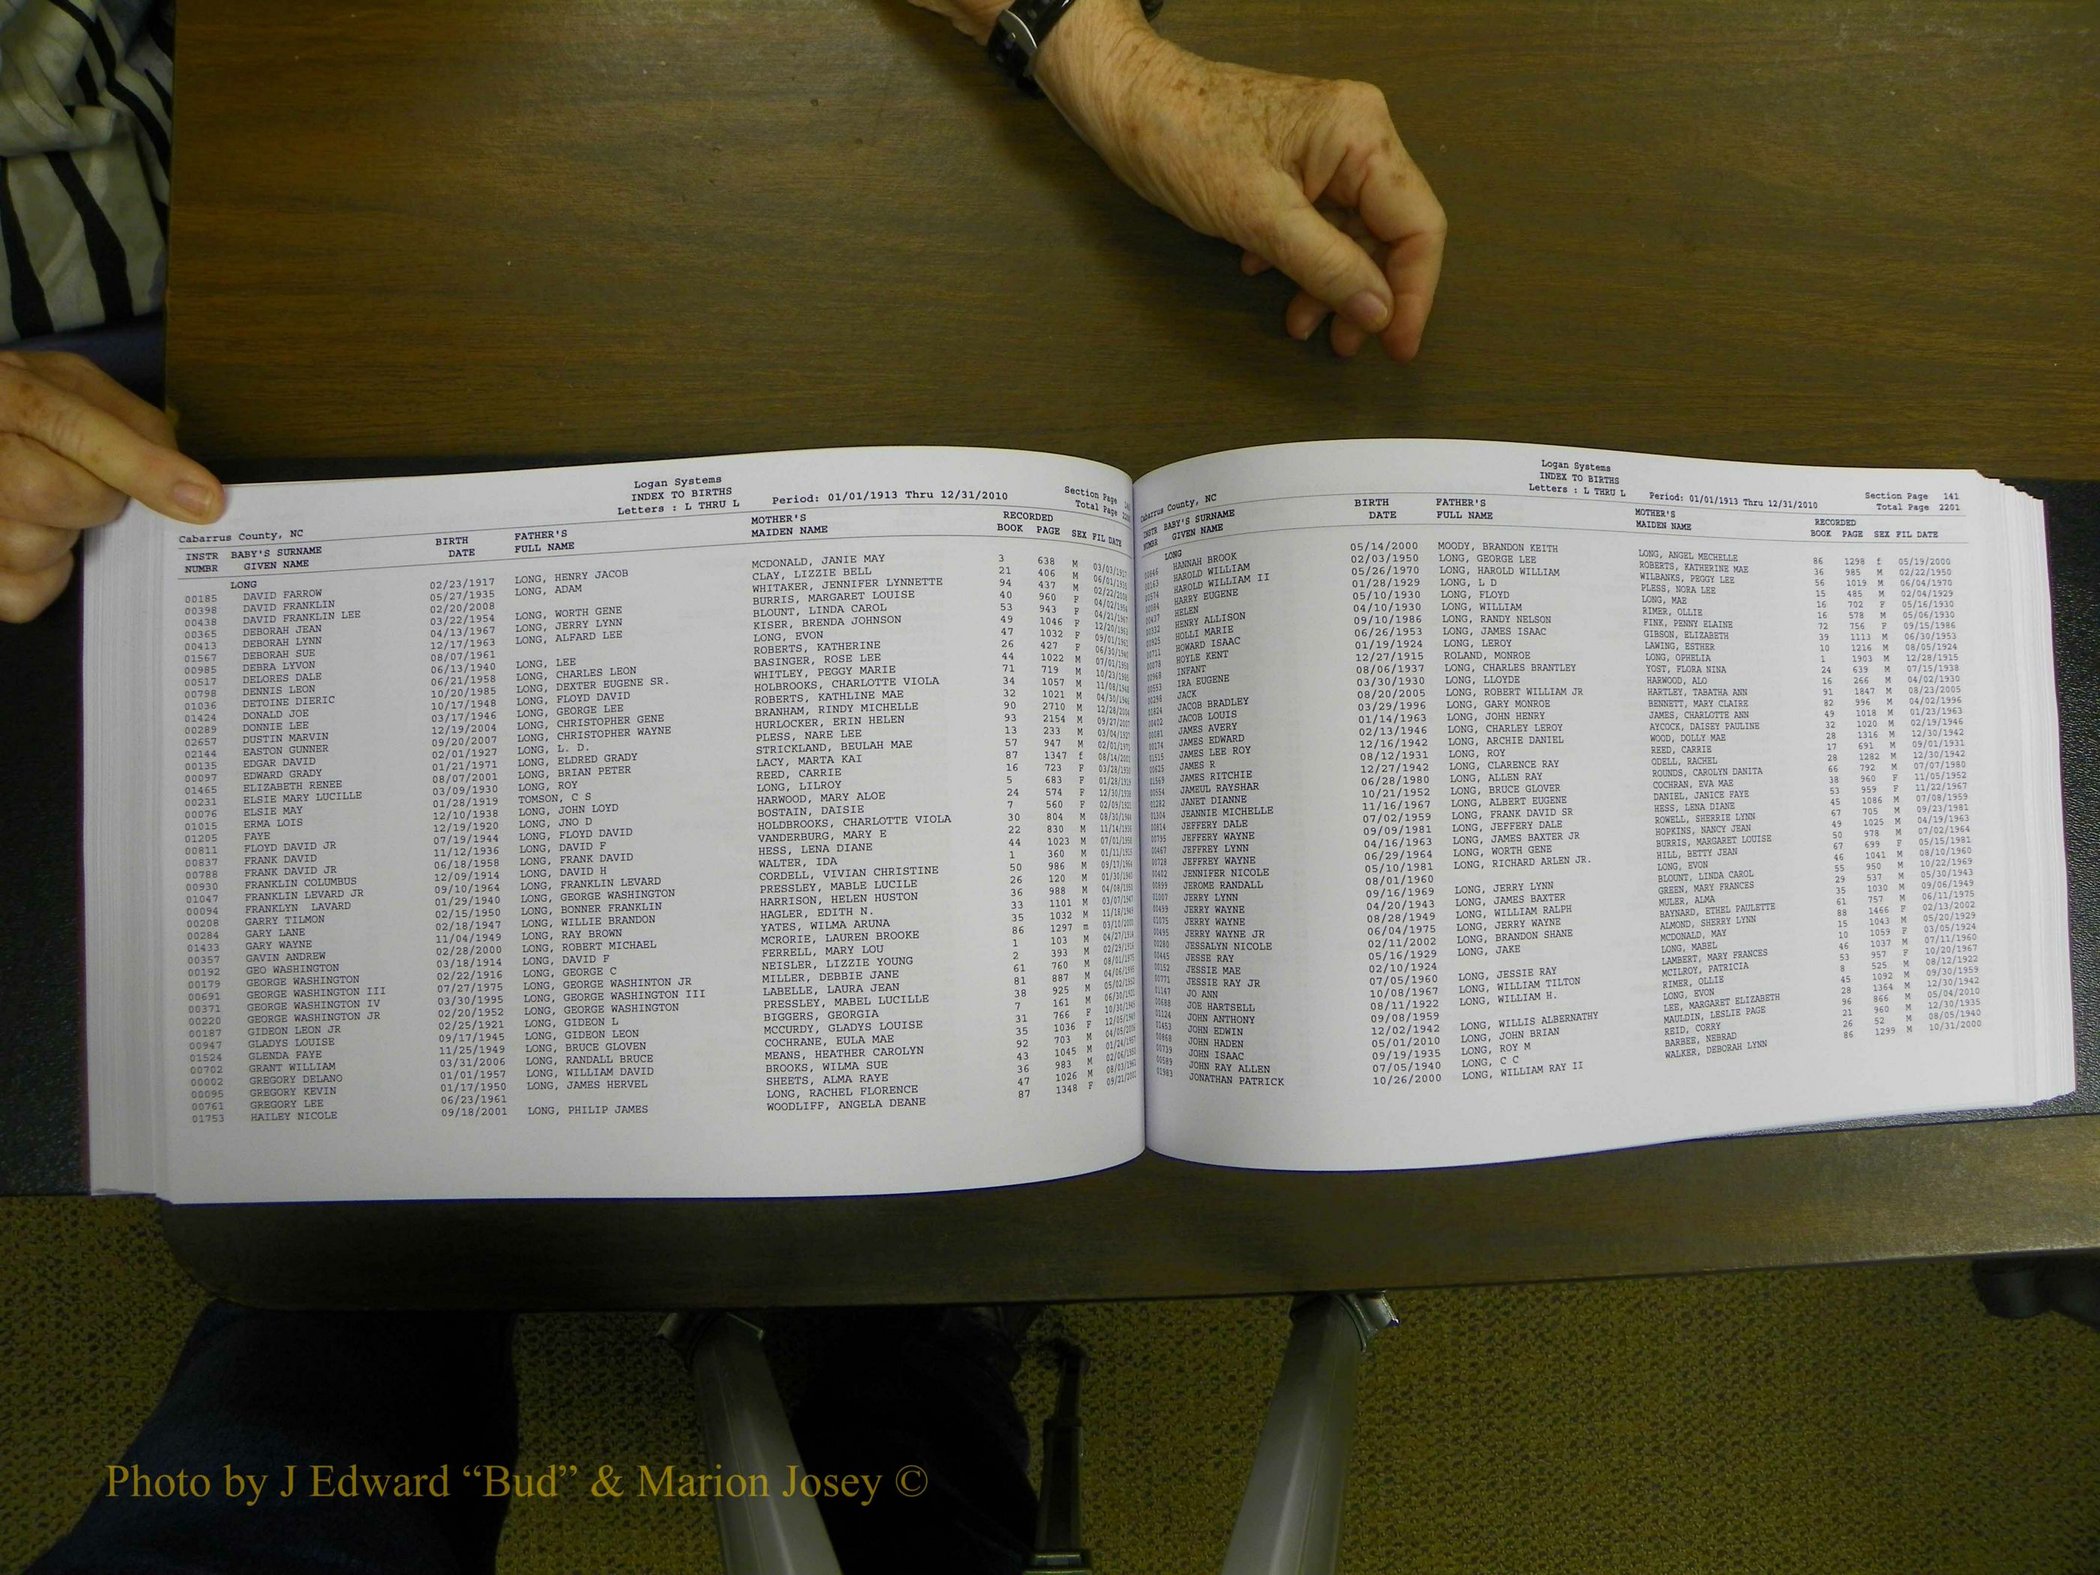 Logan Systems
INDEX TO BIRTHS
Letters : L THRU L Period: 01/01/1913 Thru 12/31/2010 Section Page
Cabarrus County, NC Total Page
INSTR BABY'S SURNAME BIRTH FATHER'S MOTHER'S RECORDED
NUMBR GIVEN NAME DATE FULL NAME MAIDEN NAME BOOK PAGE SEX FIL DATE
LONG
00185 DAVID FARROW 02/23/1917 LONG, HENRY JACOB MCDONALD, JANIE MAY 3 638 M 03/03/1917
00398 DAVID FRANKLIN 05/27/1935 LONG, ADAM CLAY, LIZZIE BELL 21 406 M 06/01/1935
00438 DAVID FRANKLIN LEE 02/20/2008 WHITAKER, JENNIFER LYNNETTE 94 437 M 02/22/2008
00365 DEBORAH JEAN 03/22/1954 LONG, WORTH GENE BURRIS, MARGARET LOUISE 40 960 F 04/02/1954
00413 DEBORAH LYNN 04/13/1967 LONG, JERRY LYNN BLOUNT, LINDA CAROL 53 943 F 04/21/1967
01567 DEBORAH SUE 12/17/1963 LONG, ALFARD LEE KISER, BRENDA JOHNSON 49 1046 F 12/20/1963
00985 DEBRA LYVON 08/07/1961 LONG, EVON 47 1032 F 09/01/1961
00517 DELORES DALE 06/13/1940 LONG, LEE ROBERTS, KATHERINE 26 427 F 06/30/1940
00798 DENNIS LEON 06/21/1958 LONG, CHARLES LEON BASINGER, ROSE LEE 44 1022 M 07/01/1958
01036 DETOINE DIERIC 10/20/1985 LONG, DEXTER EUGENE SR. WHITLEY, PEGGY MARIE 71 719 M 10/23/1985
01424 DONALD JOE 10/17/1948 LONG, FLOYD DAVID HOLBROOKS, CHARLOTTE VIOLA 34 1057 M 11/08/1948
00289 DONNIE LEE 03/17/1946 LONG, GEORGE LEE ROBERTS, KATHLINE MAE 32 1021 M 04/30/1946
02657 DUSTIN MARVIN 12/19/2004 LONG, CHRISTOPHER GENE BRANHAM, RINDY MICHELLE 90 2710 M 12/28/2004
02144 EASTON GUNNER 09/20/2007 LONG, CHRISTOPHER WAYNE HURLOCKER, ERIN HELEN 93 2154 M 09/27/2007
00135 EDGAR DAVID 02/01/1927 LONG, L. D. PLESS, NARE LEE 13 233 M 03/04/1927
00097 EDWARD GRADY 01/21/1971 LONG, ELDRED GRADY STRICKLAND, BEULAH MAE 57 947 M 02/01/1971
01465 ELIZABETH RENEE 08/07/2001 LONG, BRIAN PETER LACY, MARTA KAI 87 1347 f 08/14/2001
00231 ELSIE MARY LUCILLE 03/09/1930 LONG, ROY REED, CARRIE 16 723 F 03/28/1930
00076 ELSIE MAY 01/28/1919 TOMSON, C S LONG, LILROY 5 683 F 01/28/1919
01015 ERMA LOIS 12/10/1938 LONG, JOHN LOYD HARWOOD, MARY ALOE 24 574 F 12/30/1938
01205 FAYE 12/19/1920 LONG, JNO D BOSTAIN, DAISIE 7 560 F 02/09/1921
00811 FLOYD DAVID JR 07/19/1944 LONG, FLOYD DAVID HOLDBROOKS, CHARLOTTE VIOLA 30 804 M 08/30/1944
00837 FRANK DAVID 11/12/1936 LONG, DAVID F VANDERBURG, MARY E 22 830 M 11/14/1936
00788 FRANK DAVID JR 06/18/1958 LONG, FRANK DAVID HESS, LENA DIANE 44 1023 M 07/01/1958
00930 FRANKLIN COLUMBUS 12/09/1914 LONG, DAVID H WALTER, IDA 1 360 M 01/11/1915
01047 FRANKLIN LEVARD JR 09/10/1964 LONG, FRANKLIN LEVARD CORDELL, VIVIAN CHRISTINE 50 986 M 09/17/1964
00094 FRANKLYN LAVARD 01/29/1940 LONG, GEORGE WASHINGTON PRESSLEY, MABLE LUCILE 26 120 M 01/30/1940
00208 GARRY TILMON 02/15/1950 LONG, BONNER FRANKLIN HARRISON, HELEN HUSTON 36 988 M 04/08/1950
00284 GARY LANE 02/18/1947 LONG, WILLIE BRANDON HAGLER, EDITH N. 33 1101 M 03/07/1947
01433 GARY WAYNE 11/04/1949 LONG, RAY BROWN YATES, WILMA ARUNA 35 1032 M 11/18/1949
00357 GAVIN ANDREW 02/28/2000 LONG, ROBERT MICHAEL MCRORIE, LAUREN BROOKE 86 1297 m 03/10/2000
00192 GEO WASHINGTON 03/18/1914 LONG, DAVID F FERRELL, MARY LOU 1 103 M 04/27/1914
00179 GEORGE WASHINGTON 02/22/1916 LONG, GEORGE C NEISLER, LIZZIE YOUNG 2 393 M 02/25/1916
00691 GEORGE WASHINGTON III 07/27/1975 LONG, GEORGE WASHINTON JR MILLER, DEBBIE JANE 61 760 M 08/01/1975
00371 GEORGE WASHINGTON IV 03/30/1995 LONG, GEORGE WASHINGTON III LABELLE, LAURA JEAN 81 887 M 04/06/1995
00220 GEORGE WASHINGTON JR 02/20/1952 LONG, GEORGE WASHINGTON PRESSLEY, MABEL LUCILLE 38 925 M 05/02/1952
00187 GIDEON LEON JR 02/25/1921 LONG, GIDEON L BIGGERS, GEORGIA 7 161 M 06/30/1921
00947 GLADYS LOUISE 09/17/1945 LONG, GIDEON LEON MCCURDY, GLADYS LOUISE 31 766 F 10/30/1945
01524 GLENDA FAYE 11/25/1949 LONG, BRUCE GLOVEN COCHRANE, EULA MAE 35 1036 F 12/05/1949
00702 GRANT WILLIAM 03/31/2006 LONG, RANDALL BRUCE MEANS, HEATHER CAROLYN 92 703 M 04/05/2006
00002 GREGORY DELANO 01/01/1957 LONG, WILLIAM DAVID BROOKS, WILMA SUE 43 1045 M 01/24/1957
00095 GREGORY KEVIN 01/17/1950 LONG, JAMES HERVEL SHEETS, ALMA RAYE 36 983 M 02/06/1950
00761 GREGORY LEE 06/23/1961 LONG, RACHEL FLORENCE 47 1026 M 08/03/1961
01753 HAILEY NICOLE 09/18/2001 LONG, PHILIP JAMES WOODLIFF, ANGELA DEANE 87 1348 F 09/21/2001
Logan Systems
INDEX TO BIRTHS
Letters : L THRU L Period: 01/01/1913 Thru 12/31/2010 Section Page 141
Cabarrus County, NC Total Page 2201
INSTR BABY'S SURNAME BIRTH FATHER'S MOTHER'S RECORDED
NUMBR GIVEN NAME DATE FULL NAME MAIDEN NAME BOOK PAGE SEX FIL DATE
LONG
00846 HANNAH BROOK 05/14/2000 MOODY, BRANDON KEITH LONG, ANGEL MECHELLE 86 1298 f 05/19/2000
00163 HAROLD WILLIAM 02/03/1950 LONG, GEORGE LEE ROBERTS, KATHERINE MAE 36 985 M 02/22/1950
00574 HAROLD WILLIAM II 05/26/1970 LONG, HAROLD WILLIAM WILBANKS, PEGGY LEE 56 1019 M 06/04/1970
00084 HARRY EUGENE 01/28/1929 LONG, L D PLESS, NORA LEE 15 485 M 02/04/1929
00437 HELEN 05/10/1930 LONG, FLOYD LONG, MAE 16 702 F 05/16/1930
00332 HENRY ALLISON 04/10/1930 LONG, WILLIAM RIMER, OLLIE 16 578 M 05/06/1930
00925 HOLLI MARIE 09/10/1986 LONG, RANDY NELSON FINK, PENNY ELAINE 72 756 F 09/15/1986
00711 HOWARD ISAAC 06/26/1953 LONG, JAMES ISAAC GIBSON, ELIZABETH 39 1113 M 06/30/1953
00078 HOYLE KENT 01/19/1924 LONG, LEROY LAWING, ESTHER 10 1216 M 08/05/1924
00968 INFANT 12/27/1915 ROLAND, MONROE LONG, OPHELIA 1 1903 M 12/28/1915
00553 IRA EUGENE 08/06/1937 LONG, CHARLES BRANTLEY YOST, FLORA NINA 24 639 M 07/15/1938
00298 JACK 03/30/1930 LONG, LLOYDE HARWOOD, ALO 16 266 M 04/02/1930
01824 JACOB BRADLEY 08/20/2005 LONG, ROBERT WILLIAM JR HARTLEY, TABATHA ANN 91 1847 M 08/23/2005
00402 JACOB LOUIS 03/29/1996 LONG, GARY MONROE BENNETT, MARY CLAIRE 82 996 M 04/02/1996
00081 JAMES AVERY 01/14/1963 LONG, JOHN HENRY JAMES, CHARLOTTE ANN 49 1018 M 01/23/1963
00174 JAMES EDWARD 02/13/1946 LONG, CHARLEY LEROY AYCOCK, DAISEY PAULINE 32 1020 M 02/19/1946
01515 JAMES LEE ROY 12/16/1942 LONG, ARCHIE DANIEL WOOD, DOLLY MAE 28 1316 M 12/30/1942
00625 JAMES R 08/12/1931 LONG, ROY REED, CARRIE 17 691 M 09/01/1931
01569 JAMES RITCHIE 12/27/1942 LONG, CLARENCE RAY ODELL, RACHEL 28 1282 M 12/30/1942
00554 JAMEUL RAYSHAR 06/28/1980 LONG, ALLEN RAY ROUNDS, CAROLYN DANITA 66 792 M 07/07/1980
01282 JANET DIANNE 10/21/1952 LONG, BRUCE GLOVER COCHRAN, EVA MAE 38 960 F 11/05/1952
01304 JEANNIE MICHELLE 11/16/1967 LONG, ALBERT EUGENE DANIEL, JANICE FAYE 53 959 F 11/22/1967
00814 JEFFERY DALE 07/02/1959 LONG, FRANK DAVID SR HESS, LENA DIANE 45 1086 M 07/08/1959
00795 JEFFERY WAYNE 09/09/1981 LONG, JEFFERY DALE ROWELL, SHERRIE LYNN 67 705 M 09/23/1981
00467 JEFFREY LYNN 04/16/1963 LONG, JAMES BAXTER JR HOPKINS, NANCY JEAN 49 1025 M 04/19/1963
00728 JEFFREY WAYNE 06/29/1964 LONG, WORTH GENE BURRIS, MARGARET LOUISE 50 978 M 07/02/1964
00402 JENNIFER NICOLE 05/10/1981 LONG, RICHARD ARLEN JR. HILL, BETTY JEAN 67 699 F 05/15/1981
00899 JEROME RANDALL 08/01/1960 LONG, EVON 46 1041 M 08/10/1960
01007 JERRY LYNN 09/16/1969 LONG, JERRY LYNN BLOUNT, LINDA CAROL 55 950 M 10/22/1969
00459 JERRY WAYNE 04/20/1943 LONG, JAMES BAXTER GREEN, MARY FRANCES 29 537 M 05/30/1943
01075 JERRY WAYNE 08/28/1949 LONG, WILLIAM RALPH MULER, ALMA 35 1030 M 09/06/1949
00495 JERRY WAYNE JR 06/04/1975 LONG, JERRY WAYNE BAYNARD, ETHEL PAULETTE 61 757 M 06/11/1975
00280 JESSALYN NICOLE 02/11/2002 LONG, BRANDON SHANE ALMOND, SHERRY LYNN 88 1466 F 02/13/2002
00445 JESSE RAY 05/16/1929 LONG, JAKE MCDONALD, MAY 15 1043 M 05/20/1929
00152 JESSIE MAE 02/10/1924 LONG, MABEL 10 1059 F 03/05/1924
00771 JESSIE RAY JR 07/05/1960 LONG, JESSIE RAY LAMBERT, MARY FRANCES 46 1037 M 07/11/1960
01147 JO ANN 10/08/1967 LONG, WILLIAM TILTON MCILROY, PATRICIA 53 957 F 10/20/1967
00688 JOE HARTSELL 08/11/1922 LONG, WILLIAM H. RIMER, OLLIE 8 525 M 08/12/1922
01124 JOHN ANTHONY 09/08/1959 LONG, EVON 45 1092 M 09/30/1959
01453 JOHN EDWIN 12/02/1942 LONG, WILLIS ALBERNATHY LEE, MARGARET ELIZABETH 28 1364 M 12/30/1942
00868 JOHN HADEN 05/01/2010 LONG, JOHN BRIAN MAULDIN, LESLIE PAGE 96 866 M 05/04/2010
00739 JOHN ISAAC 09/19/1935 LONG, ROY M REID, CORRY 21 960 M 12/30/1935
00589 JOHN RAY ALLEN 07/05/1940 LONG, C C BARBEE, NEBRAD 26 52 M 08/05/1940
01983 JONATHAN PATRICK 10/26/2000 LONG, WILLIAM RAY II WALKER, DEBORAH LYNN 86 1299 M 10/31/2000
Photo by J Edward “Bud” & Marion Josey ©